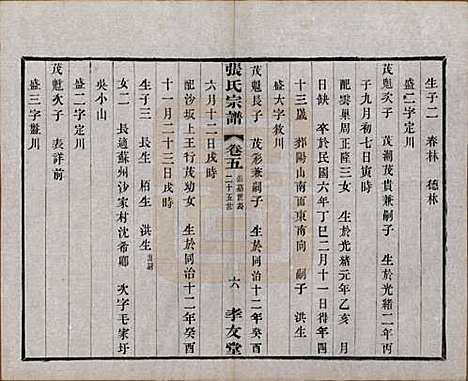 生子二 春林 德林
盛二字定川
茂魁次子 茂潮茂貴兼嗣子 生於光緒二年丙
子九月初七日寅時
配雲巢周正隆三女 生於光緒元年乙亥 月
日缺 卒於民國六年丁巳二月十一日得年四
十三歲 葬陽山南面東南向 嗣子 洪生
盛大字敘川
茂魁長子 茂彩兼嗣子 生於同治十二年癸酉
張氏宗譜 卷五 世表 二十五世 六 孝友堂
六月十二日戌時
配沙坂上王行茂幼女 生於同治十二年癸酉
十一月二十三日戌時
生子三 長生 栢生 洪生 出嗣
女二 長適蘇州沙家村沈希卿 次字毛家圩
吳小山
盛二字定川
茂魁次子 表詳前
盛三字鑒川